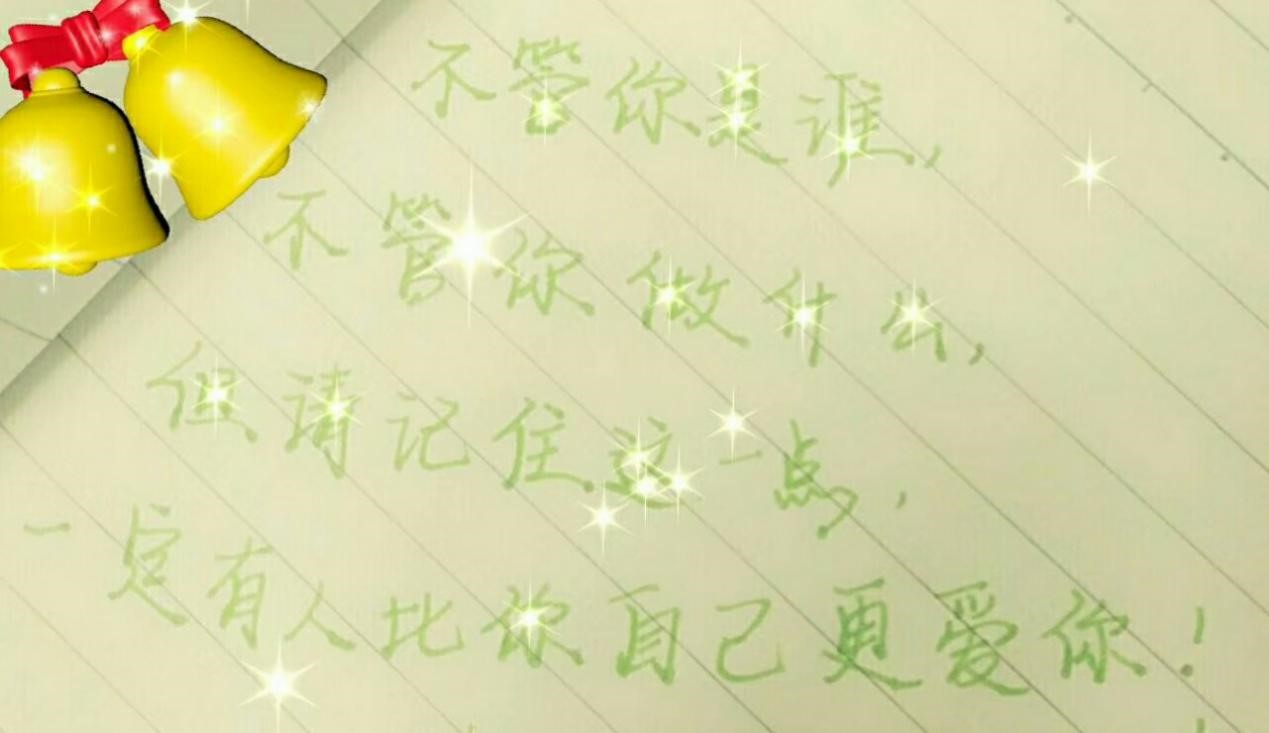 不管你是谁，
不管你做什么，
但请记住这一点，
一定有人比你自己更爱你！